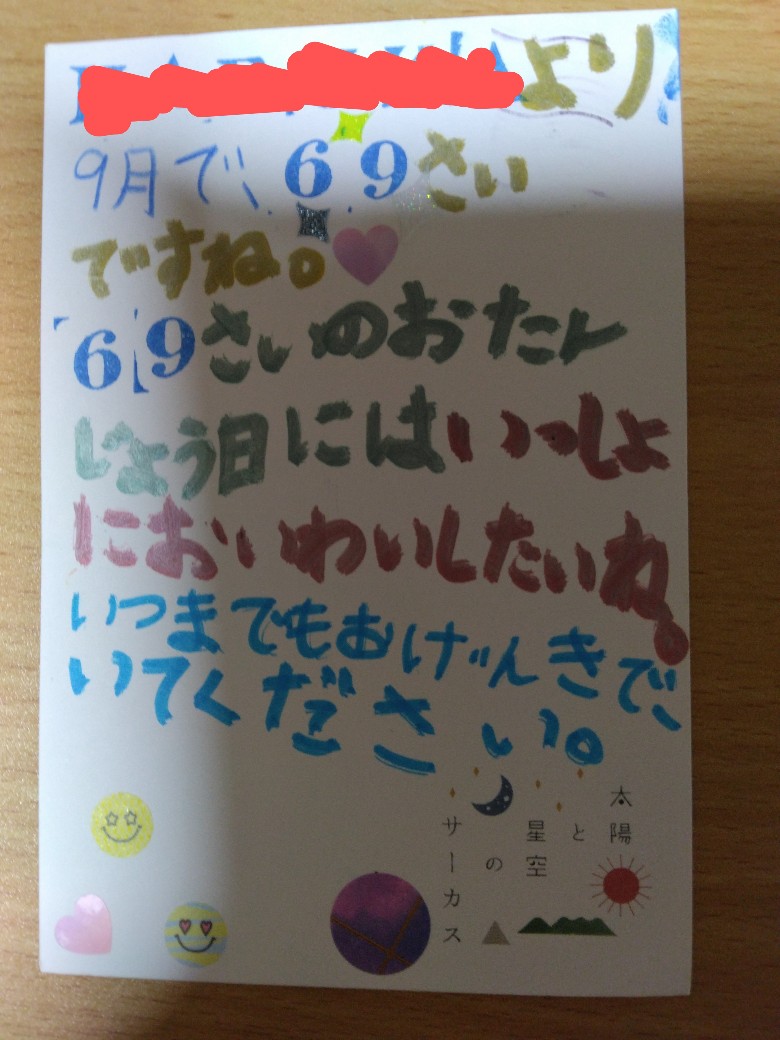 より
9月で、69さい
ですね。
69さいのおたん
じょう日にはいっしょ
においわいしたいね。
いつまでもおげんきで、
いてください。
太陽
と
星空
の
サーカス